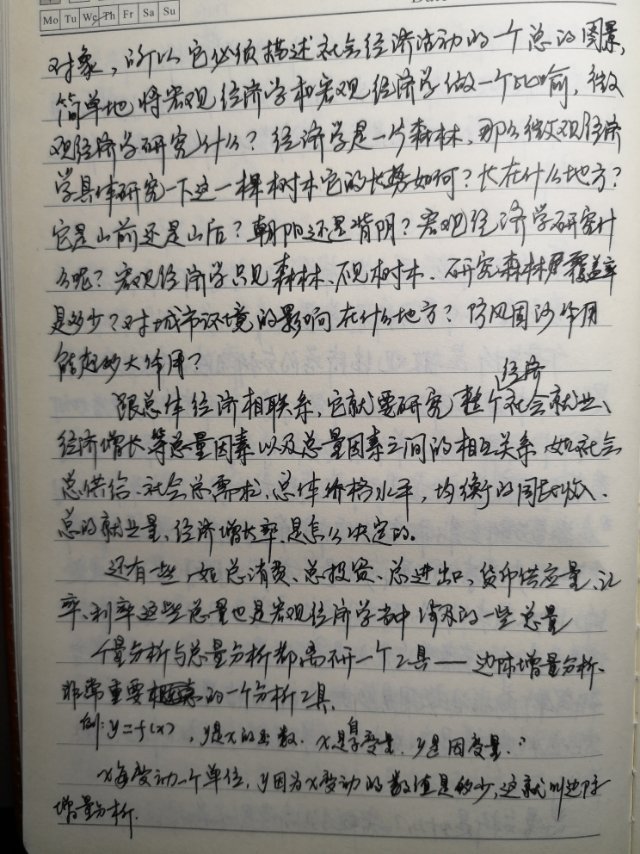 Mo Tu We Th Fr Sa Su
对象，所以它必须描述社会经济活动的一个总的图景，
简单地将宏观经济学和宏观经济学做一个比喻，微
观经济学研究什么？经济学是一片森林，那么微观经济
学具体研究一下这一棵树木它的长势如何？长在什么地方？
它是山前还是山后？朝阳还是背阴？宏观经济学研究什
么呢？宏观经济学只见森林、不见树木、研究森林覆盖率
是多少？对城市环境的影响在什么地方？防风固沙作用
能起多大作用？
跟总体经济相联系，它就要研究整个经济社会就业、
经济增长等总量因素以及总量因素之间的相互关系 如社会
总供给、社会总需求、总体价格水平，均衡的国民收入、
总的就业量、经济增长率、是怎么决定的。
还有一些，如总消费、总投资、总进出口、货币供应量、汇
率、利率这些总量也是宏观经济学当中涉及的一些总量
个量分析与总量分析都离不开一个工具——边际增量分析.
非常重要的一个分析工具.
例：y=f(x)，y是x的函数. x是自变量. y是因变量.
x每变动一个单位，y因为x变动的数值是多少，这就叫边际
增量分析.